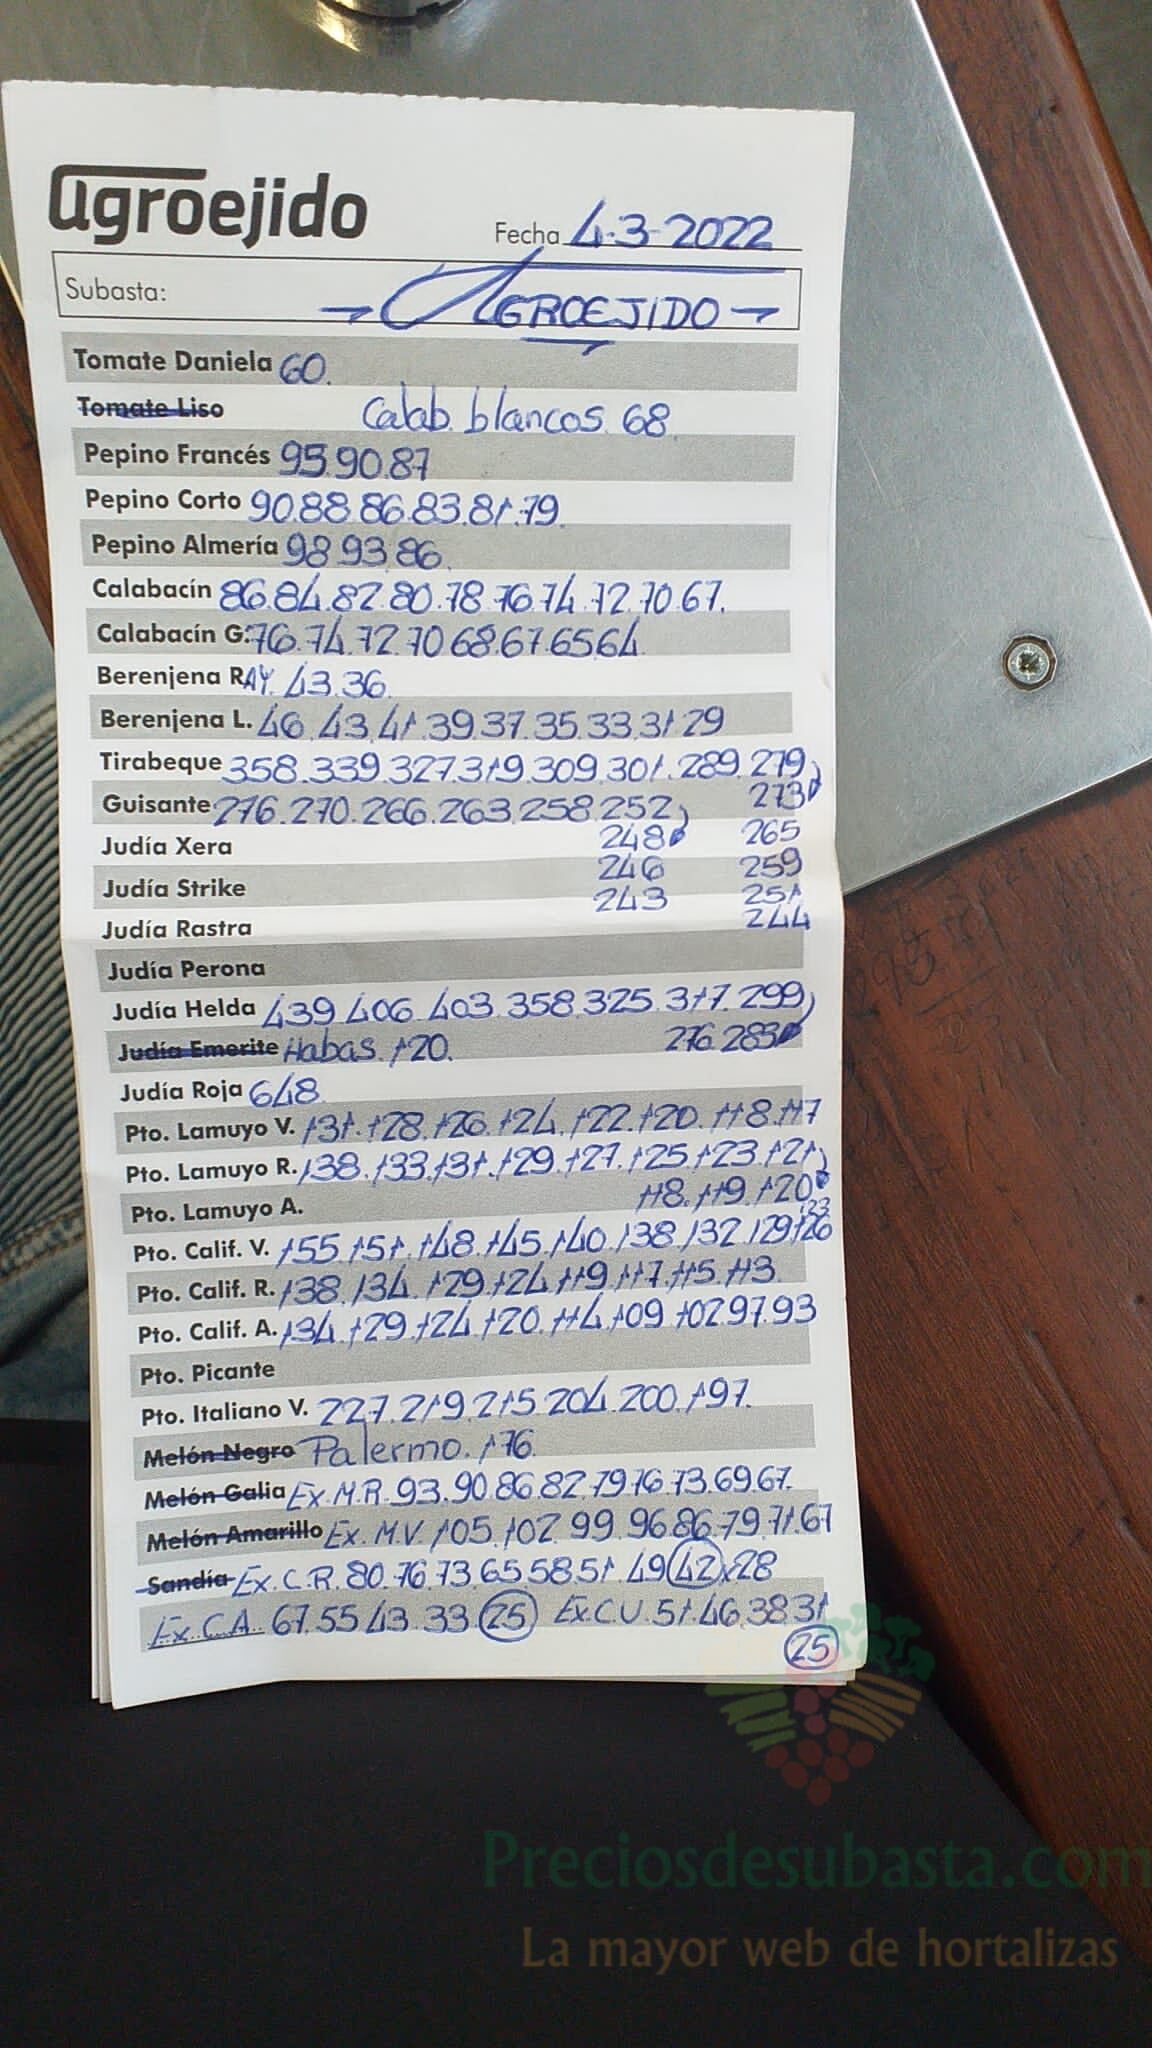 agroejido
Fecha 4-3-2022
Subasta: → AGROEJIDO →
Tomate Daniela 60.
Tomate Liso Calab. blancos. 68.
Pepino Francés 95.90.87
Pepino Corto 90.88.86.83.81.79.
Pepino Almería 98.93.86.
Calabacín 86.84.82.80.78.76.74.72.70.67.
Calabacín G. 76.74.72.70.68.67.65.64.
Berenjena RAY. 43.36.
Berenjena L. 46.43.41.39.37.35.33.31.29
Tirabeque 358.339.327.319.309.301.289.279
Guisante 276.270.266.263.258.252 273
Judía Xera 248 265
246 259
Judía Strike 243 251
Judía Rastra 244
Judía Perona
Judía Helda 439.406.403.358.325.317.299
Judía Emerite Habas. 120. 276.283
Judía Roja 648.
Pto. Lamuyo V. 131.128.126.124.122.120.118.117
Pto. Lamuyo R. 138.133.131.129.127.125.123.121
Pto. Lamuyo A. 118.119.120
133
Pto. Calif. V. 155.151.148.145.140.138.132.129.126
Pto. Calif. R. 138.134.129.124.119.117.115.113.
Pto. Calif. A. 134.129.124.120.114.109.102.97.93
Pto. Picante
Pto. Italiano V. 227.219.215.204.200.197.
Melón Negro Palermo. 176.
Melón Galia Ex.M.R. 93.90.86.82.79.76.73.69.67.
Melón Amarillo Ex.M.V. 105.102.99.96.86.79.71.67
Sandía Ex.C.R. 80.76.73.65.58.51.49.42.28
Ex.C.A. 67.55.43.33.25 Ex.C.V. 51.46.38.31
25
Preciosdesubasta.com
La mayor web de hortalizas